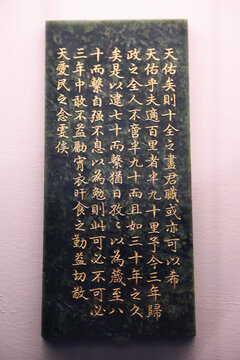 天佑矣則十全之書君職或亦可以希
天佑乎夫適百里者半九十里予今三年歸
政之全人不啻半九十而且如三十年之久
矣是以逮七十而繫猶日孜孜以為箴至八
十而繫自强不息以為勉則此可必不可必
三年中敢不益勵宵衣旰食之勤益切敬
天愛民之念雯俟